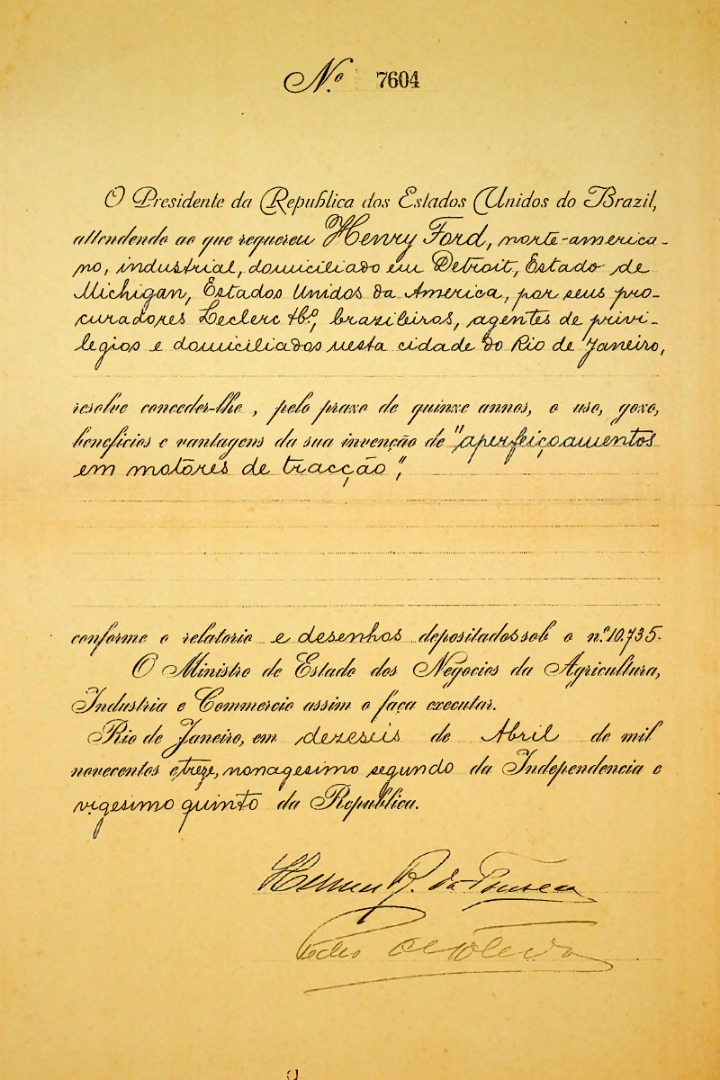 Nº 7604
O Presidente da Republica dos Estados Unidos do Brazil,
attendendo ao que requereu Henry Ford, norte-america-
no, industrial, domiciliado em Detroit, Estado de
Michigan, Estados Unidos da America, por seus pro-
curadores Leclerc & Cº, brazileiros, agentes de privi-
legios e domiciliados nesta cidade do Rio de Janeiro,
resolve conceder-lhe, pelo prazo de quinze annos, o uso, gozo,
beneficios e vantagens da sua invenção de "aperfeiçoamentos
em motores de tracção",
conforme o relatorio e desenhos depositados sob o nº 10.735.
O Ministro de Estado dos Negocios da Agricultura,
Industria e Commercio assim o faça executar.
Rio de Janeiro, em dezeseis de Abril de mil
novecentos e treze, nonagesimo segundo da Independencia e
vigesimo quinto da Republica.
Hermes R. da Fonseca
Pedro de Toledo